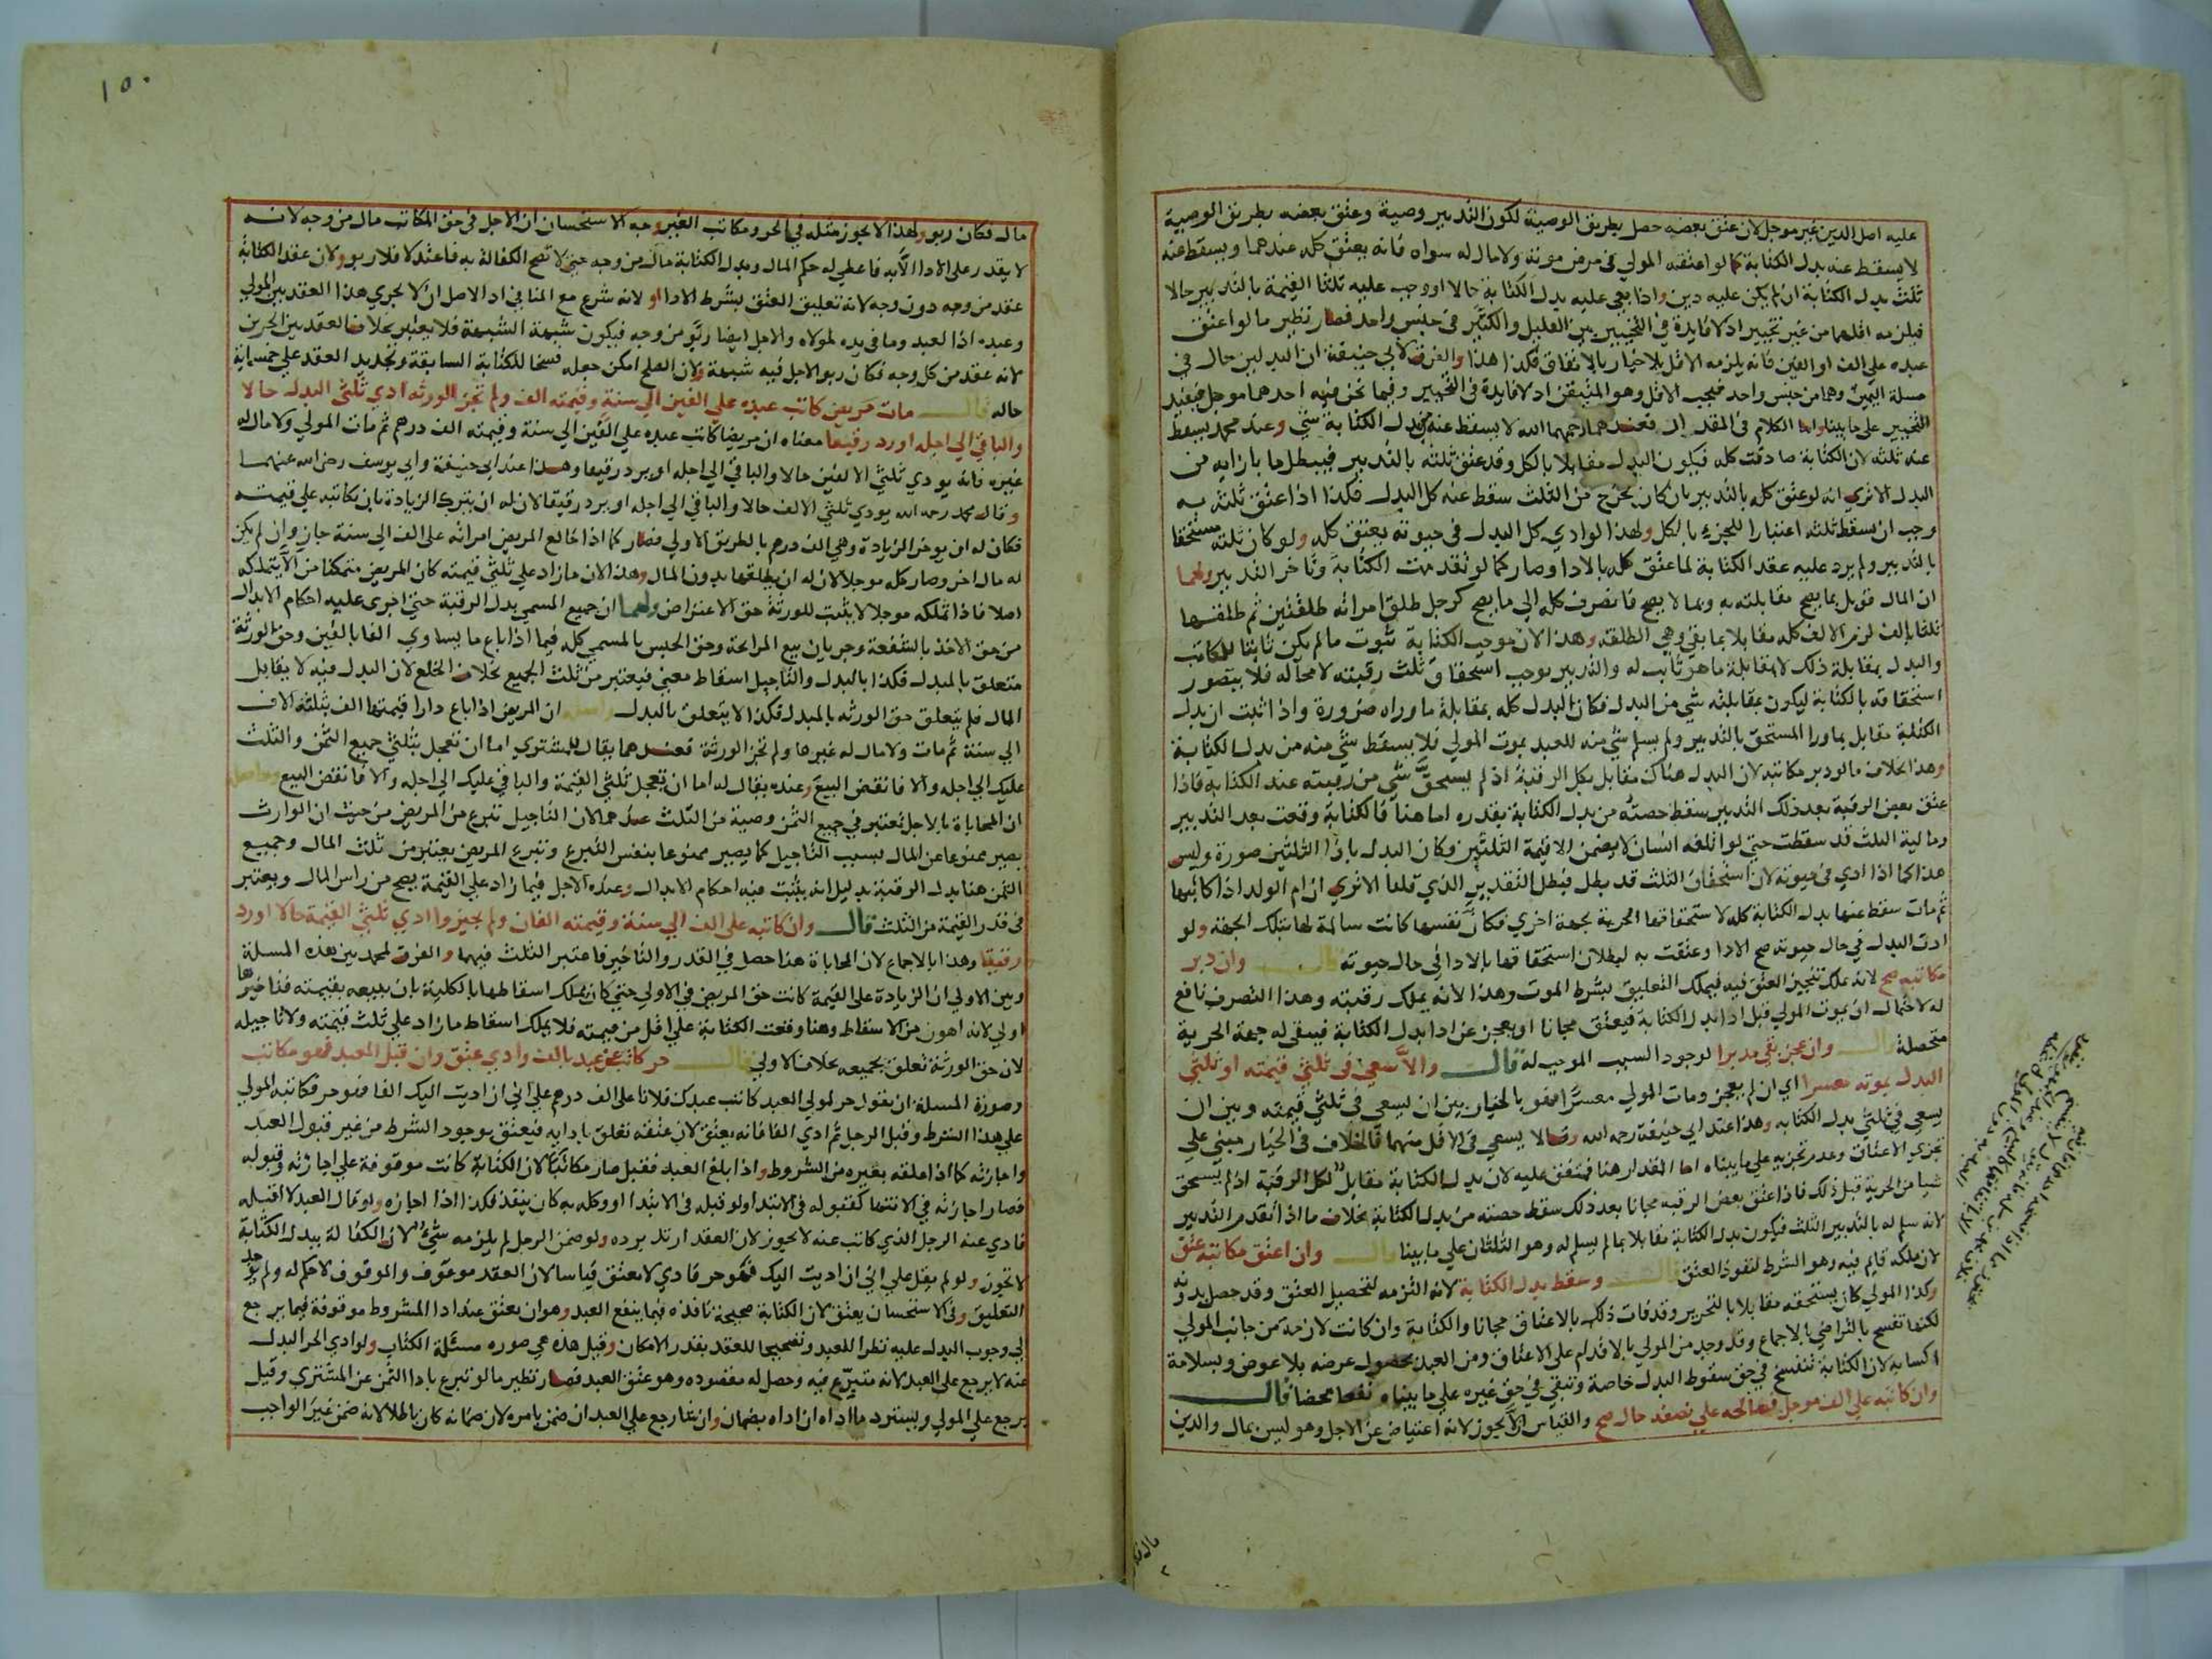 عليه اصل الدين غير موجل لان عتق بعضه حصل بطريق الوصية لكون التدبير وصية وعتق بعضه بطريق الوصية
لا يسقط عنه بدل الكتابة كما لو اعتقه المولي في مرض موته ولا مال له سواه فانه يعتق كله عندهما ويسقط عنه
ثلث بدل الكتابة ان لم يكن عليه دين واذا بقي عليه بدل الكتابة حالا او وجب عليه ثلثا القيمة بالتدبير حالا
فيلزمه اقلهما من غير تخيير اذ لا فايدة في التخيير بين القليل والكثير في جنس واحد فصار نظير ما لو اعتق
عبده علي الف او الفين فانه يلزمه الاقل بلا خيار بالاتفاق فكذا هذا والفرق لابي حنيفة ان البدلين حال في
مسلة اليمين وهما من جنس واحد فيجب الاقل وهو المتيقن اذ لا فايدة في التخيير وفيما نحن فيه احدهما موجل فيفيد
التخيير علي ما بينا واما الكلام في المقدار فعندهما رحمهما الله لا يسقط عنه من بدل الكتابة شي وعند محمد يسقط
عنه ثلثه لان الكتابة صادفت كله فيكون البدل مقابلا بالكل وقد عتق ثلثه بالتدبير فيبطل ما بازايه من
البدل الا تري انه لو عتق كله بالتدبير بان كان يخرج من الثلث سقط عنه كل البدل فكذا اذا عتق ثلثه به
وجب ان يسقط ثلثه اعتبارا للجزء بالكل ولهذا لو ادي كل البدل في حيوته يعتق كله ولو كان ثلثه مستحقا
بالتدبير ولم يرد عليه عقد الكتابة لما عتق كله بالادا وصار كما لو تقدمت الكتابة وتاخر التدبير ولهما
ان المال قوبل بما يصح مقابلته به وبما لا يصح فانصرف كله الي ما يصح كرجل طلق امراته طلقتين ثم طلقها
ثلثا بالف لزم الالف كله مقابلا بما بقي وهي الطلقة وهذا لان موجب الكتابة ثبوت ما لم يكن ثابتا للمكاتب
والبدل بمقابلة ذلك لا بمقابلة ما هو ثابت له والتدبير يوجب استحقاق ثلث رقبته لا محاله فلا يتصور
استحقاقه بالكتابة ليكون بمقابلته شي من البدل فكان البدل كله بمقابلة ما وراه ضرورة واذا اثبت ان بدل
الكتابة مقابل بما ورا المستحق بالتدبير ولم يسلم شي منه للعبد بموت المولي فلا يسقط شي منه من بدل الكتابة
وهذا بخلاف ما لو دبر مكاتبه لان البدل هناك مقابل بكل الرقبة اذ لم يستحق شي من رقبته عند الكتابه فاذا
عتق بعض الرقبة بعد ذلك التدبير سقط حصته من بدل الكتابة بقدره اما هنا فالكتابة وقعت بعد التدبير
ومالية الثلث قد سقطت حتي لو اتلفه انسان لا يضمن الا قيمة الثلثين وكان البدل بازا الثلثين صورة وليس
هذا كما اذا ادي في حيوته لان استحقاق الثلث قد بطل فبطل التقدير الذي قلنا الا تري ان ام الولد اذا كاتبها
ثم مات سقط عنها بدل الكتابة كله لاستحقاقها الحرية بجهة اخري فكان نفسها كانت سالمة لها بتلك الجهة ولو
ادت البدل في حال حيوته صح الادا وعتقت به لبطلان استحقاقها بالادا في حال حيوته قال وان دبر
مكاتبه صح لانه يملك تنجيز العتق فيه فيملك التعليق بشرط الموت وهذا لانه يملك رقبته وهذا التصرف نافع
له لاحتمال ان يموت المولي قبل ادا بدل الكتابة فيعتق مجانا او يعجز عن ادا بدل الكتابة فيبقي له جهة الحرية
متحصلة قال وان عجز بقي مدبرا لوجود السبب الموجب له قال والا سعي في ثلثي قيمته او ثلثي
البدل بموته معسرا اي ان لم يعجز ومات المولي معسرا فهو بالخيار بين ان يسعي في ثلثي قيمته وبين ان
يسعي في ثلثي بدل الكتابه وهذا عند ابي حنيفة رحمه الله وقالا يسعي في الاقل منهما فالخلاف في الخيار مبني علي
تجزي الاعتاق وعدم تجزيه علي ما بيناه اما المقدار هنا فمتفق عليه لان بدل الكتابة مقابل لكل الرقبة اذ لم يستحق
شيا من الحرية قبل ذلك فاذا عتق بعض الرقبه مجانا بعد ذلك سقط حصته من بدل الكتابة بخلاف ما اذا تقدم التدبير
لانه سلم له بالتدبير الثلث فيكون بدل الكتابة مقابلا بما لم يسلم له وهو الثلثان علي ما بينا قال وان اعتق مكاتبه عتق
لان ملكه قايم فيه وهو الشرط لنفوذ العتق قال وسقط بدل الكتابة لانه التزمه لتحصيل العتق وقد حصل بدونه
وكذا المولي كان يستحقه مقابلا بالتحرير وقد فات ذلك بالاعتاق مجانا والكتابة وان كانت لازمة من جانب المولي
لكنها تفسخ بالتراضي بالاجماع وقد وجد من المولي بالاقدام علي الاعتاق ومن العبد بحصول غرضه بلا عوض وبسلامة
اكسابه لان الكتابة تنفسخ في حق سقوط البدل خاصة وتبقي في حق غيره علي ما بيناه نفعا محضا قال
وان كاتبه علي الف موجل فصالحه علي نصفه حال صح والقياس الا يجوز لانه اعتياض عن الاجل وهو ليس بمال والدين
١٥٠
مال فكان ربو ولهذا لا يجوز مثله في الحر ومكاتب الغير وجه الاستحسان ان الاجل في حق المكاتب مال من وجه لانه
لا يقدر علي الادا الا به فاعطي له حكم المال وبدل الكتابة مال من وجه حتي لا تصح الكفالة به فاعتدلا فلا ربو ولان عقد الكتابة
عقد من وجه دون وجه لانه تعليق العتق بشرط الادا او لانه شرع مع المنافي اذ الاصل ان لا يجري هذا العقد بين المولي
وعبده اذ العبد وما في يده لمولاه والاجل ايضا ربو من وجه فيكون شبهة الشبهة فلا يعتبر بخلاف العقد بين الحرين
لانه عقد من كل وجه فكان ربو الاجل فيه شبهة ولان الصلح امكن جعله فسخا للكتابة السابقة وتجديد العقد علي خمسماية
حاله قال مات مريض كاتب عبده علي الفين الي سنة وقيمته الف ولم تجز الورثه ادي ثلثي البدل حالا
والباقي الي اجله او رد رقيقا معناه ان مريضا كاتب عبده علي الفين الي سنة وقيمته الف درهم ثم مات المولي ولا مال له
غيره فانه يودي ثلثي الالفين حالا والباقي الي اجله او يرد رقيقا وهذا عند ابي حنيفة وابي يوسف رضي الله عنهما
وقال محمد رحمه الله يودي ثلثي الالف حالا والباقي الي اجله او يرد رقيقا لان له ان يترك الزيادة بان يكاتبه علي قيمته
فكان له ان يوخر الزيادة وهي الف درهم بالطريق الاولي فصار كما اذا خالع المريض امراته علي الف الي سنة جاز وان لم يكن
له مال اخر وصار كله موجلا لان له ان يطلقها بدون المال وهذا لان ما زاد علي ثلثي قيمته كان المريض متمكنا من الا يتملكه
اصلا فاذا تملكه موجلا لا يثبت للورثة حق الاعتراض ولهما ان جميع المسمي بدل الرقبة حتي اجري عليه احكام الابدال
من حق الاخذ بالشفعة وجريان بيع المرابحة وحق الحبس بالمسمي كله فيما اذا باع ما يساوي الفا بالفين وحق الورثة
متعلق بالمبدل فكذا بالبدل والتاجيل اسقاط معني فيعتبر من ثلث الجميع بخلاف الخلع لان البدل فيه لا يقابل
المال فلم يتعلق حق الورثه بالمبدل فكذا لا يتعلق بالبدل واصله ان المريض اذا باع دارا قيمتها الف بثلثة الاف
الي سنة ثم مات ولا مال له غيرها ولم تجز الورثة فعندهما يقال للمشتري اما ان تعجل بثلثي جميع الثمن والثلث
عليك الي اجله والا فانقض البيع وعنده يقال له اما ان تعجل ثلثي القيمة والباقي عليك الي اجله والا فانقض البيع وحاصله
ان المحاباة بالاجل يعتبر في جميع الثمن وصية من الثلث عندهما لان التاجيل تبرع من المريض من حيث ان الوارث
يصير ممنوعا عن المال بسبب التاجيل كما يصير ممنوعا بنفس التبرع وتبرع المريض يعتبر من ثلث المال وجميع
الثمن هنا بدل الرقبة بدليل انه يثبت فيه احكام الابدال وعنده الاجل فيما زاد علي القيمة يصح من راس المال ويعتبر
في قدر القيمة من الثلث قال وان كاتبه علي الف الي سنة وقيمته الفان ولم يجيزوا ادي ثلثي القيمة حالا او رد
رقيقا وهذا بالاجماع لان المحاباة هنا حصل في القدر والتاخير فاعتبر الثلث فيهما والفرق لمحمد بين هذه المسلة
وبين الاولي ان الزيادة علي القيمة كانت حق المريض في الاولي حتي كان يملك اسقاطها بالكلية بان يبيعه بقيمته فتاخيرها
اولي لانه اهون من الاسقاط وهنا وقعت الكتابة علي اقل من قيمته فلا يملك اسقاط ما زاد علي ثلث قيمته ولا تاجيله
لان حق الورثة تعلق بجميعه بخلاف الاولي قال حر كاتب عن عبد بالف وادي عتق وان قبل العبد فهو مكاتب
وصورة المسلة ان يقول حر لمولي العبد كاتب عبدك فلانا علي الف درهم علي اني ان اديت اليك الفا فهو حر فكاتبه المولي
علي هذا الشرط وقبل الرجل ثم ادي الفا فانه يعتق لان عتقه تعلق بادايه فيعتق بوجود الشرط من غير قبول العبد
واجازته كما اذا علقه بغيره من الشروط واذا بلغ العبد فقبل صار مكاتبا لان الكتابة كانت موقوفة علي اجازته وقبوله
فصار اجازته في الانتها كقبوله في الابتدا ولو قبله في الابتدا او وكله به كان ينفذ فكذا اذا اجازه ولو قال العبد لا اقبله
فادي عنه الرجل الذي كاتب عنه لا يجوز لان العقد ارتد برده ولو ضمن الرجل لم يلزمه شي لان الكفالة ببدل الكتابة
لا تجوز ولو لم يقل علي اني ان اديت اليك فهو حر فادي لا يعتق قياسا لان العقد موقوف والموقوف لا حكم له ولم يوجد
التعليق وفي الاستحسان يعتق لان الكتابة صحيحة نافذه فيما ينفع العبد وهو ان يعتق عند ادا المشروط موقوفة فيما يرجع
الي وجوب البدل عليه نظرا للعبد وتصحيحا للعقد بقدر الامكان وقيل هذه هي صوره مسئلة الكتاب ولو ادي الحر البدل
عنه لا يرجع علي العبد لانه متبرع فيه وحصل له مقصوده وهو عتق العبد فصار نظير ما لو تبرع بادا الثمن عن المشتري وقيل
يرجع علي المولي ويسترد ما اداه ان اداه بضمان وان شا رجع علي العبد ان ضمن بامره لان ضمانه كان باطلا لانه ضمن غير الواجب